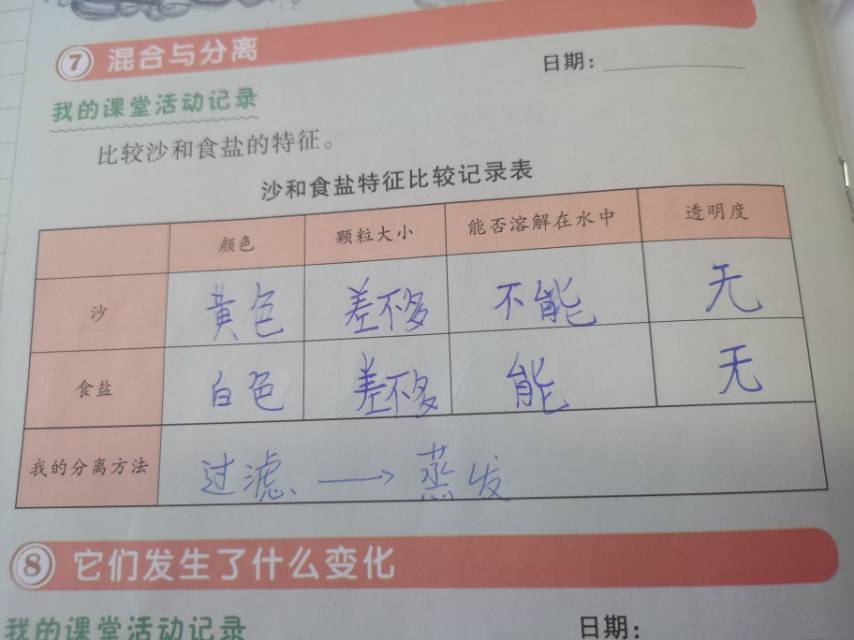 7 混合与分离
日期：
我的课堂活动记录
比较沙和食盐的特征。
沙和食盐特征比较记录表
颜色 颗粒大小 能否溶解在水中 透明度
沙 黄色 差不多 不能 无
食盐 白色 差不多 能 无
我的分离方法 过滤、→蒸发
8 它们发生了什么变化
我的课堂活动记录 日期：